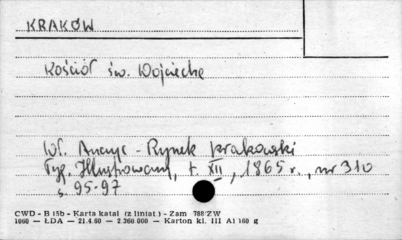 KRAKÓW
Kościół św. Wojciecha
Wł. Anczyc - Rynek krakowski
Tyg. Illustrowany, t. XII, 1865 r., nr 310
s. 95-97
CWD - B 15b - Karta katal (z liniat.) - Zam 788/ZW
1060 — ŁDA — 21.4.60 — 2.360.000 — Karton kl. III A1 160 g